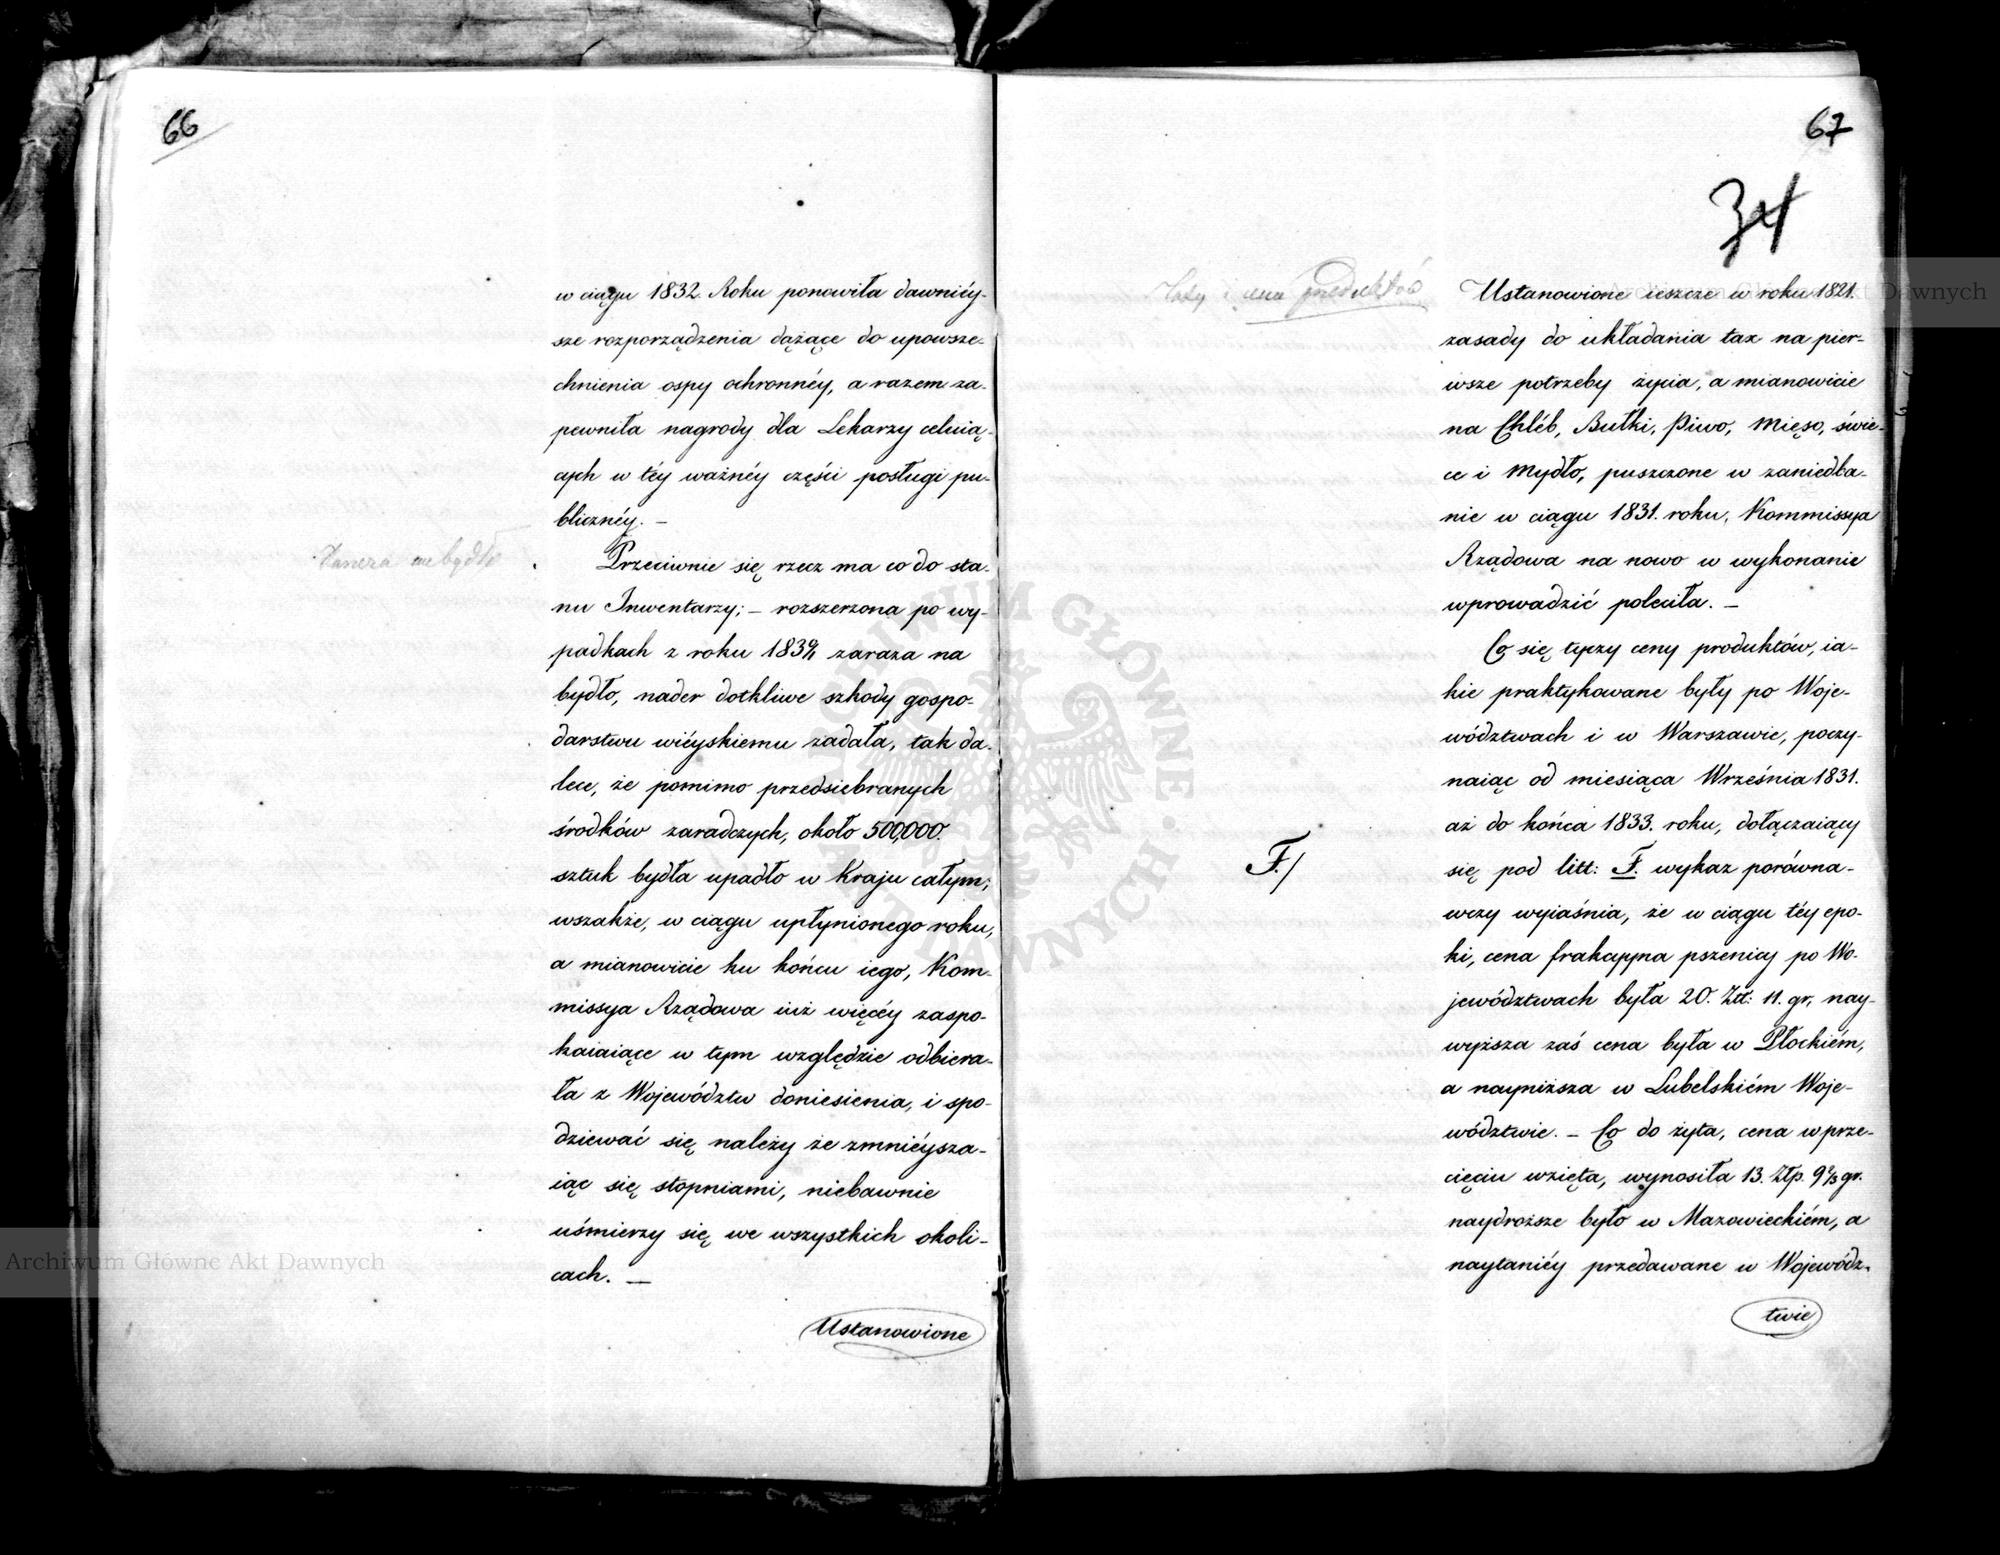 66
w ciągu 1832. Roku ponowiła dawniéy-
sze rozporządzenia dążące do upowsze-
chnienia ospy ochronnéy, a razem za-
pewniła nagrody dla Lekarzy celuią-
cych w téy ważnéy części posługi pu-
blicznéy. —
Zaraza na bydło
Przeciwnie się rzecz ma co do sta-
nu Inwentarzy; — rozszerzona po wy-
padkach z roku 183 0/1 zaraza na
bydło, nader dotkliwe szkody gospo-
darstwu wiéyskiemu zadała, tak da-
lece, że pomimo przedsiebranych
środków zaradczych, około 500,000.
sztuk bydła upadło w Kraju całym;
wszakże, w ciągu upłynionego roku,
a mianowicie ku końcu iego, Kom-
missya Rządowa iuż więcéy zaspo-
kaiaiące w tym względzie odbiera-
ła z Województw doniesienia, i spo-
dziewać się należy że zmniéysza-
iąc się stopniami, niebawnie
uśmierzy się we wszystkich okoli-
cach. —
Ustanowione
67
34
Taxy i cena produktów
Ustanowione ieszcze w roku 1821.
zasady do układania tax na pier-
wsze potrzeby życia, a mianowicie
na Chléb, Bułki, Piwo, Mięso, świe-
ce i Mydło, puszczone w zaniedba-
nie w ciągu 1831. roku, Kommissya
Rządowa na nowo w wykonanie
wprowadzić poleciła. —
Co się tyczy ceny produktów, ia-
kie praktykowane były po Woje-
wództwach i w Warszawie, poczy-
naiąc od miesiąca Września 1831.
aż do końca 1833. roku, dołączaiący
F./
się pod litt: F. wykaz porówna-
wczy wyiaśnia, że w ciągu téy epo-
ki, cena frakcyjna pszenicy po Wo-
jewództwach była 20. Złt: 11. gr, nay-
wyższa zaś cena była w Płockiém,
a nayniższa w Lubelskiém Woje-
wództwie. — Co do żyta, cena w prze-
cięciu wzięta, wynosiła 13. Złp. 9 2/3 gr.
naydroższe było w Mazowieckiém, a
naytaniéy przedawane w Wojewódz-
twie
ARCHIWUM GŁÓWNE AKT DAWNYCH
Archiwum Główne Akt Dawnych
Archiwum Główne Akt Dawnych